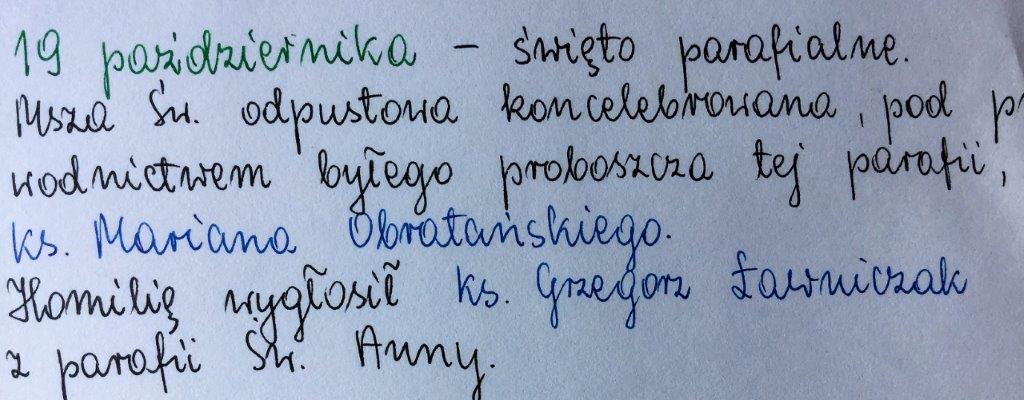 19 października – święto parafialne.
Msza Św. odpustowa koncelebrowana, pod p
wodnictwem byłego proboszcza tej parafii,
ks. Mariana Obratańskiego.
Homilię wygłosił ks. Grzegorz Ławniczak
z parafii Św. Anny.